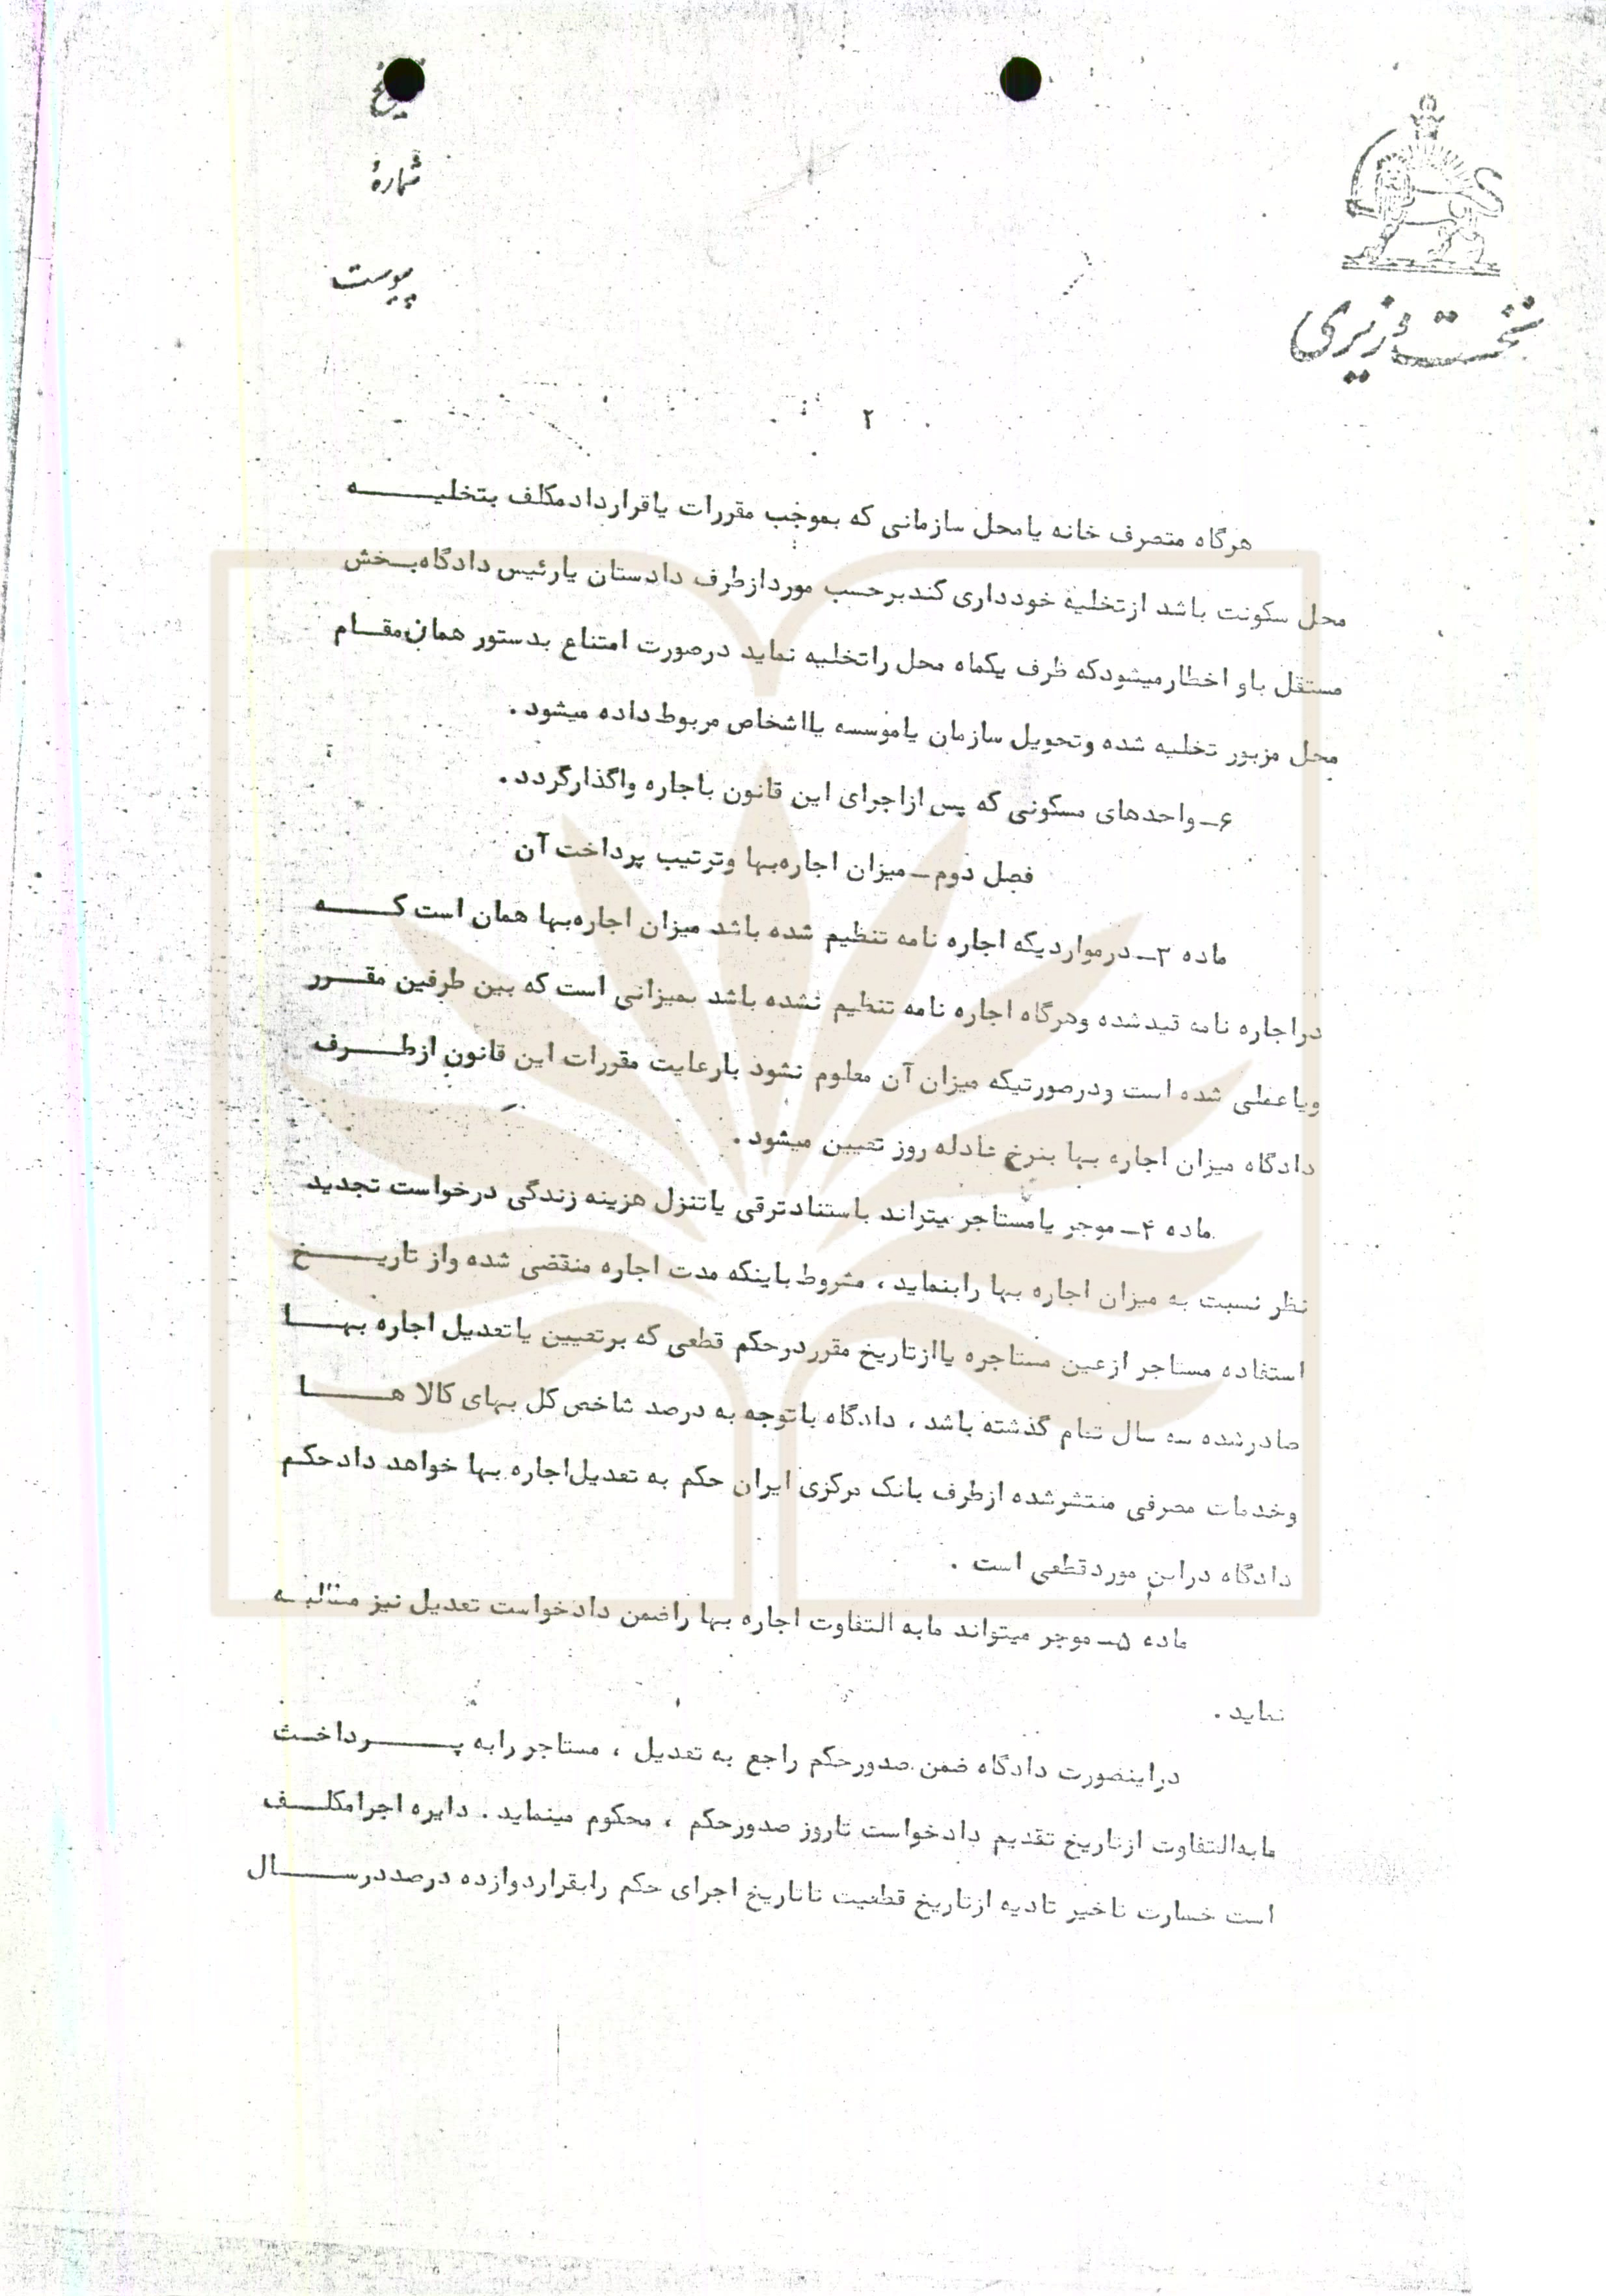 تاریخ
شمارهٔ
پیوست
نخست وزیری
۲
هرگاه متصرف خانه یامحل سازمانی که بموجب مقررات یاقراردادمکلف بتخلیـــــه
محل سکونت باشد ازتخلیه خودداری کندبرحسب موردازطرف دادستان یارئیس دادگاه‌بـخش
مستقل باو اخطارمیشودکه ظرف یکماه محل راتخلیه نماید درصورت امتناع بدستور همان‌مقـــام
محل مزبور تخلیه شده وتحویل سازمان یاموسسه یااشخاص مربوط داده میشود .
۶ـ واحدهای مسکونی که پس ازاجرای این قانون باجاره واگذارگردد .
فصل دوم ـ میزان اجاره‌بها وترتیب پرداخت آن
ماده ۳ـ درمواردیکه اجاره نامه تنظیم شده باشد میزان اجاره‌بها همان است کـــــه
دراجاره نامه قیدشده وهرگاه اجاره نامه تنظیم نشده باشد بمیزانی است که بین طرفین مقـــرر
ویاعملی شده است ودرصورتیکه میزان آن معلوم نشود بارعایت مقررات این قانون ازطـــرف
دادگاه میزان اجاره بها بنرخ عادله روز تعیین میشود .
ماده ۴ـ موجر یامستاجر میتواند باستنادترقی یاتنزل هزینه زندگی درخواست تجدید
نظر نسبت به میزان اجاره بها رابنماید ، مشروط باینکه مدت اجاره منقضی شده واز تاریـــــخ
استفاده مستاجر ازعین مستاجره یاازتاریخ مقرردرحکم قطعی که برتعیین یاتعدیل اجاره بهـــا
صادرشده سه سال تمام گذشته باشد ، دادگاه باتوجه به درصد شاخص کل بهای کالا هـــــا
وخدمات مصرفی منتشرشده ازطرف بانک مرکزی ایران حکم به تعدیل‌اجاره بها خواهد دادحکـم
دادگاه دراین موردقطعی است .
ماده ۵ـ موجر میتواند مابه التفاوت اجاره بها راضمن دادخواست تعدیل نیز مطالبـه
نماید .
دراینصورت دادگاه ضمن صدورحکم راجع به تعدیل ، مستاجر رابه پـــــرداخـت
مابه‌التفاوت ازتاریخ تقدیم دادخواست تاروز صدورحکم ، محکوم مینماید . دایره اجرامکلـــف
است خسارت تاخیر تادیه ازتاریخ قطعیت تاتاریخ اجرای حکم رابقراردوازده درصددرســـــال